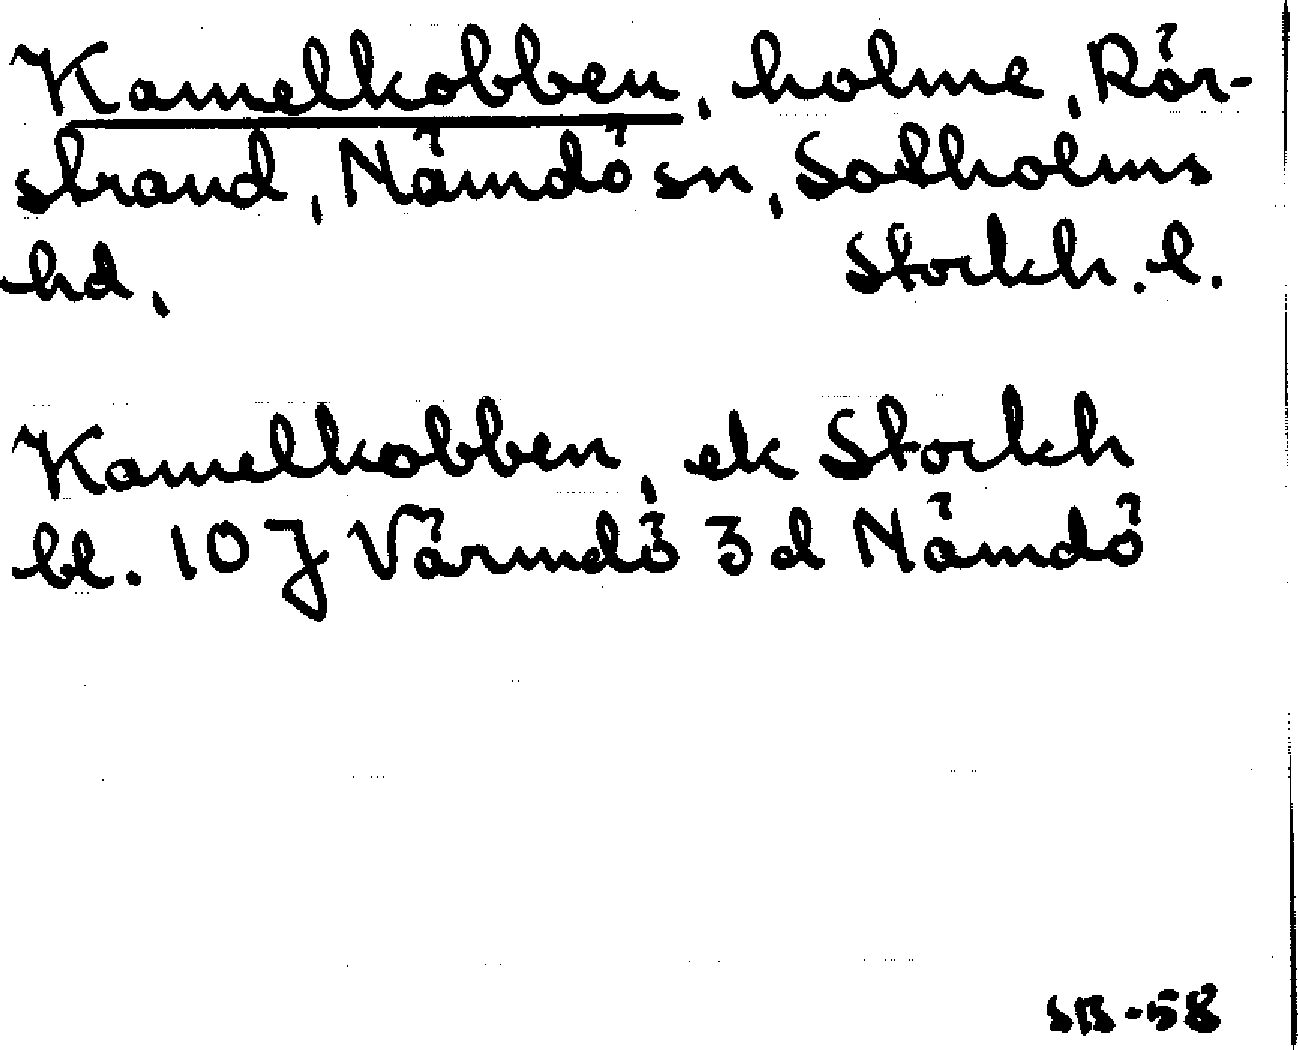 Kamelkobben, holme, Rör-
strand, Nämdö sn, Sotholms
hd, Stockh. l.
Kamelkobben, ek Stockh
bl. 10 J Värmdö 3d Nämdö
SB-58